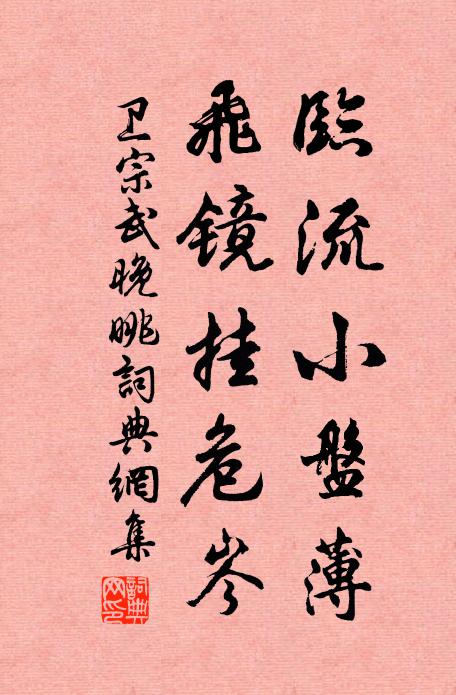 臨流小盤薄
飛镜挂危岑
卫宗武晚眺詞典網集
詞典網印